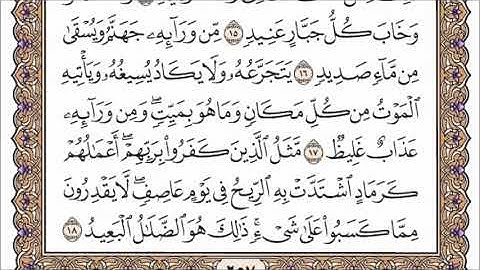 وَخَابَ كُلُّ جَبَّارٍ عَنِيدٍ ١٥ مِّن وَرَآئِهِۦ جَهَنَّمُ وَيُسْقَىٰ
مِن مَّآءٍ صَدِيدٍ ١٦ يَتَجَرَّعُهُۥ وَلَا يَكَادُ يُسِيغُهُۥ وَيَأْتِيهِ
ٱلْمَوْتُ مِن كُلِّ مَكَانٍ وَمَا هُوَ بِمَيِّتٍ ۖ وَمِن وَرَآئِهِۦ
عَذَابٌ غَلِيظٌ ١٧ مَّثَلُ ٱلَّذِينَ كَفَرُوا۟ بِرَبِّهِمْ ۖ أَعْمَٰلُهُمْ
كَرَمَادٍ ٱشْتَدَّتْ بِهِ ٱلرِّيحُ فِى يَوْمٍ عَاصِفٍ ۖ لَّا يَقْدِرُونَ
مِمَّا كَسَبُوا۟ عَلَىٰ شَىْءٍ ۚ ذَٰلِكَ هُوَ ٱلضَّلَٰلُ ٱلْبَعِيدُ ١٨
٢٥٧